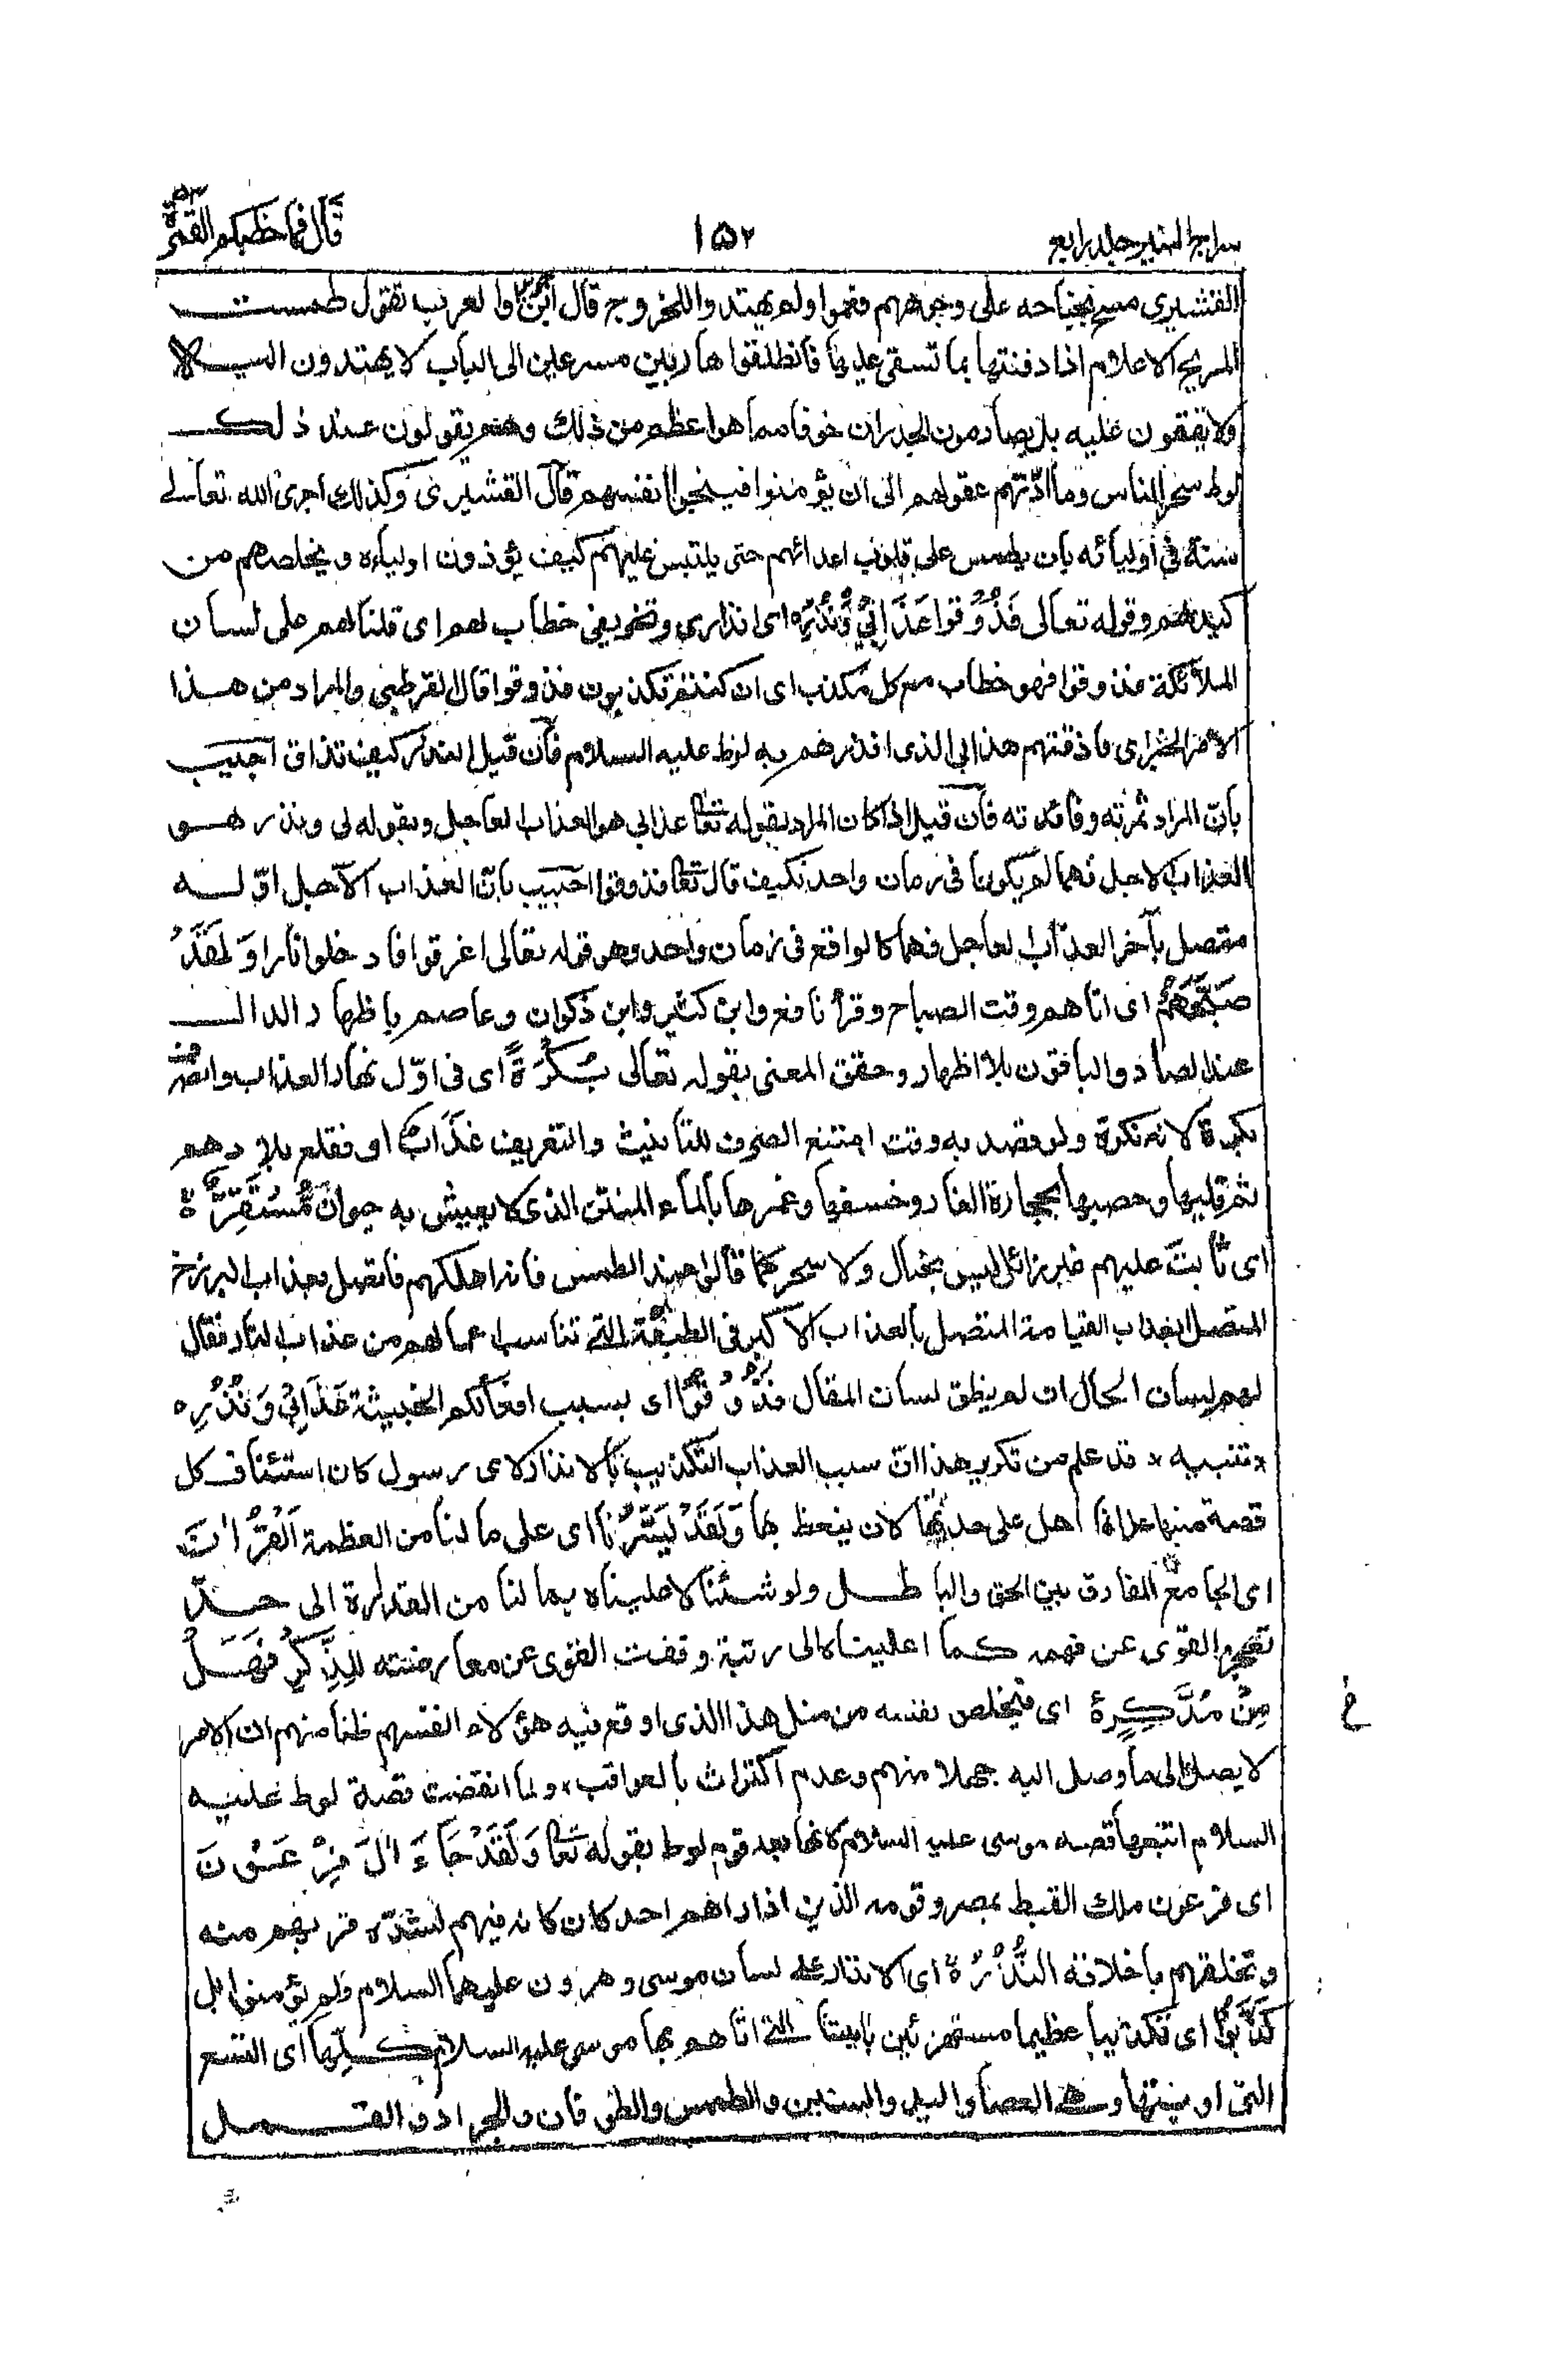 سراج المنير جلد رابع
١٥٢
قال فما خطبكم القمر
القشيرى مسح بجناحه على وجوههم فعموا ولم يهتدوا للخروج قال ابن والعرب تقول طمست
الريح الاعلام اذا دفنتها بما تسفى عليها فانطلقوا هاربين مسرعين الى الباب لا يهتدون اليه ولا
ولا يقفون عليه بل يصادمون الجدران خوفا مما هو اعظم من ذلك وهم يقولون عند ذلك
لوط سحر الناس وما ادّتهم عقولهم الى ان يؤمنوا فينجوا انفسهم قال القشيرى وكذلك اجرى الله تعالى
سنته فى اوليائه بان يطمس على قلوب اعدائهم حتى يلتبس عليهم كيف يؤذون اولياءه ويخلصهم من
كيدهم وقوله تعالى فَذُوْقُوْا عَذَابِيْ وَنُذُرِ اى انذارى وتخويفى خطاب لهم اى قلنا لهم على لسان
الملائكة فذوقوا فهو خطاب مع كل مكذب اى ان كنتم تكذبون فذوقوا قال القرطبى والمراد من هذا
الامر الخبر اى فاذقتهم عذابى الذى انذرهم به لوط عليه السلام فان قيل النذر كيف تذاق اجيب
بانّ المراد ثمرته وفائدته فان قيل اذا كان المراد بقوله تعا عذابى هو العذاب العاجل وبقوله لى ونذر هو
العذاب الاجل فهما لم يكونا فى زمان واحد فكيف قال تعا فذوقوا اجيب بانّ العذاب الآجل اوّله
متصل بآخر العذاب العاجل فهما كالواقع فى زمان واحد وهو قوله تعالى اغرقوا فادخلوا نارا وَلَقَدْ
صَبَّحَهُمْ اى اتاهم وقت الصباح وقرأ نافع وابن كثير وابن ذكوان وعاصم باظهار دالـ
عند الصاد والباقون بلا اظهار وحقق المعنى بقوله تعالى بُكْرَةً اى فى اوّل نهار العذاب وانصرفت
بكرة لانه نكرة ولو قصد به وقت امتنع الصرف للتانيث والتعريف عَذَابٌ او فقلع بلادهم
ثم قلبها وحصبها بحجارة النار وخسفها وغمرها بالماء المنتن الذى لا يعيش به حيوان مُّسْتَقِرٌّ
اى ثابت عليهم غير زائل ليس بخيال ولا سحر كما قالوا عند الطمس فانه اهلكهم فاتصل بعذاب البرزخ
المتصل بعذاب القيامة المتصل بالعذاب الاكبر فى الطبقة التى تناسب اعمالهم من عذاب النار فقال
لهم لسان الحال ان لم ينطق لسان المقال فَذُوْقُوْا اى بسبب افعالكم الخبيثة عَذَابِيْ وَنُذُرِ
* تنبيه * قد علم من تكرير هذا انّ سبب العذاب التكذيب بالانذار لاى رسول كان استئناف كل
قصة منبها على انها اهل على حدتها لان يتعظ بها وَلَقَدْ يَسَّرْنَا اى على ما لنا من العظمة الْقُرْاٰنَ
اى الجامع الفارق بين الحق والباطل ولو شئنا لاعليناه بما لنا من القدرة الى حدّ
تعجز القوى عن فهمه كما اعليناه الى رتبة وقفت القوى عن معارضته لِلذِّكْرِ فَهَلْ
مِنْ مُدَّكِرٍ اى فيخلص نفسه من مثل هذا الذى اوقع فيه هؤلاء انفسهم ظنا منهم ان الامر
لا يصل الى ما وصل اليه جهلا منهم وعدم اكتراث بالعواقب، ولما انقضت قصة لوط عليه
السلام اتبعها قصة موسى عليه السلام لانها بعد قوم لوط بقوله تعا وَلَقَدْ جَاءَ اٰلَ فِرْعَوْنَ
اى فرعون ملك القبط بمصر وقومه الذين اذا راهم احد كان كانه فيهم لشدّة قربهم منه
وتخلقهم باخلاقه النُّذُرُ اى الانذار على لسان موسى وهرون عليهما السلام فلم يؤمنوا بل
كَذَّبُوْا اى تكذيبا عظيما مستهزئين بايتنا التى اتاهم بها موسى عليه السلام كلّها اى التسع
التى اوتيتها وهى العصا واليد والسنين والطمس والطوفان والجراد والقمل
ع